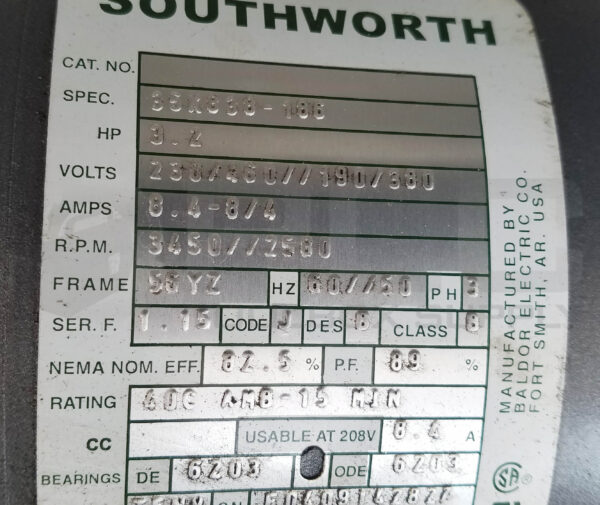 SOUTHWORTH
CAT. NO.
SPEC. 35K838-186
HP 3.2
VOLTS 230/460//190/380
AMPS 8.4-8/4
R.P.M. 3450//2580
FRAME 56YZ HZ 60//50 PH 3
SER. F. 1.15 CODE J DES B CLASS B
NEMA NOM. EFF. 82.5 % P.F. 89 %
RATING 40C AMB-15 MIN
CC USABLE AT 208V 8.4 A
BEARINGS DE 6203 ODE 6203
MANUFACTURED BY
BALDOR ELECTRIC CO.
FORT SMITH, AR. USA